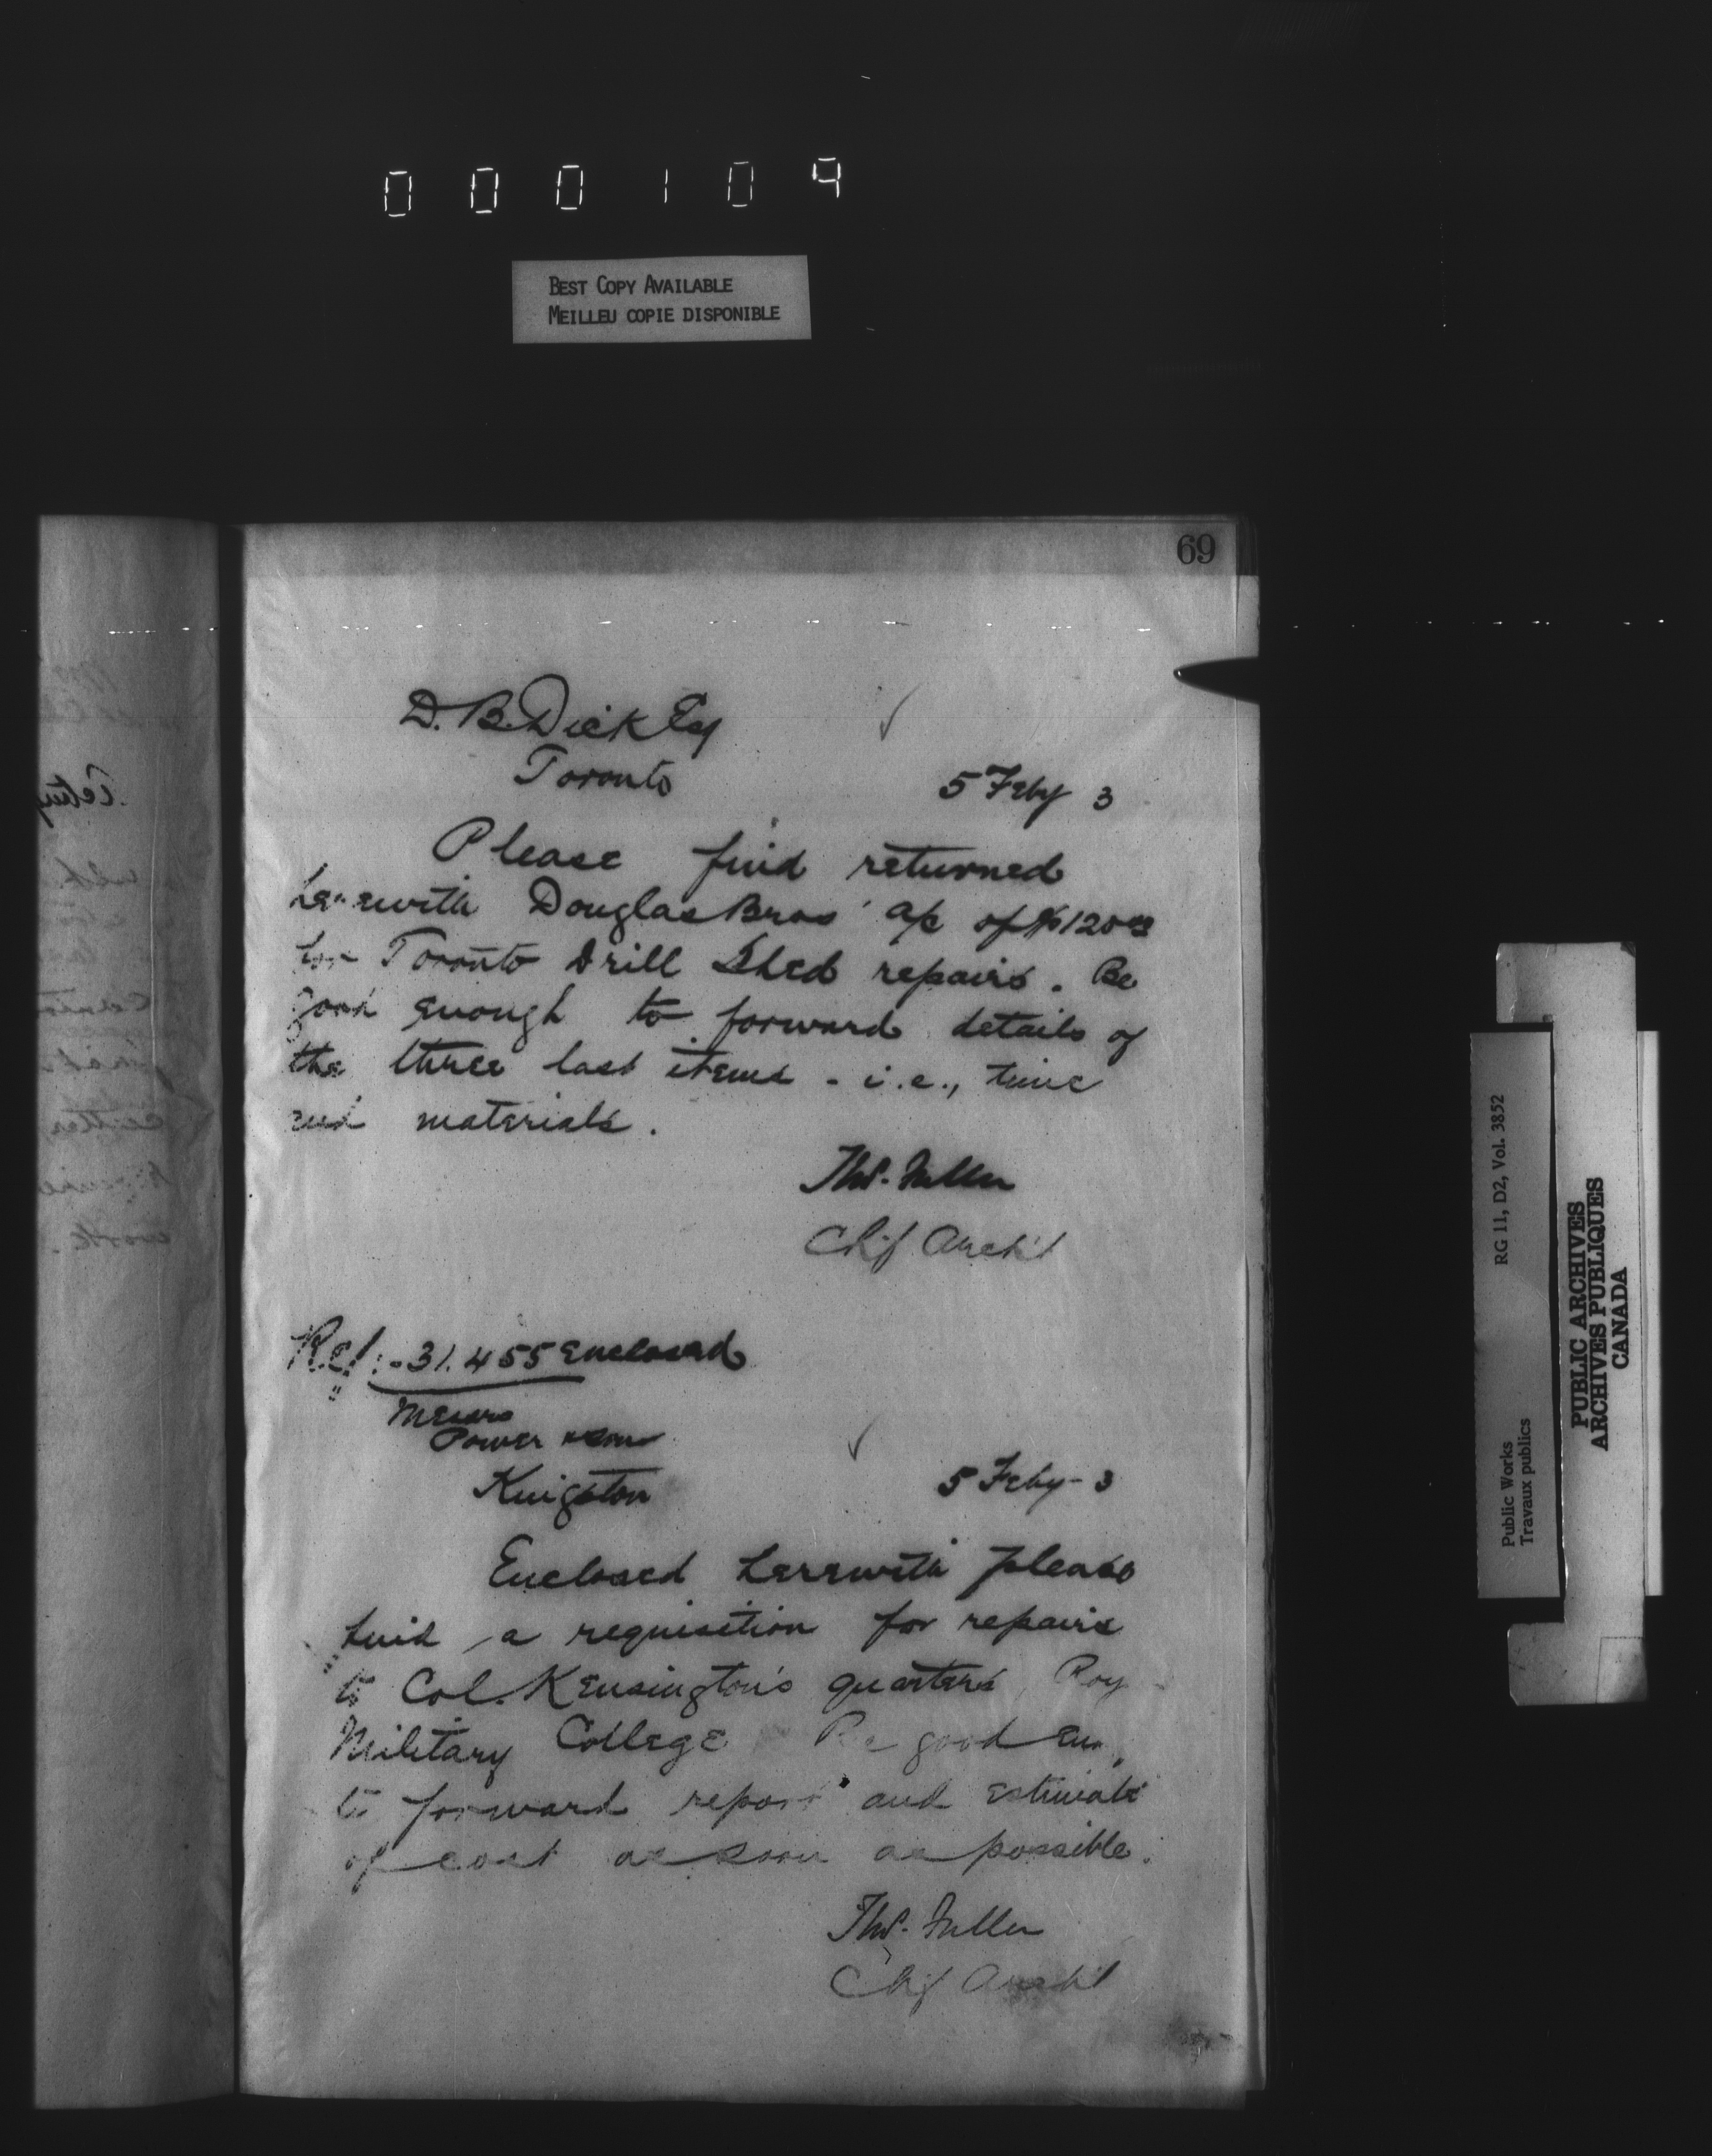 000109
BEST COPY AVAILABLE
MEILLEU COPIE DISPONIBLE
69
D. B. Dick Esq
Toronto
5 Feby 3
Please find returned
herewith Douglas Bros' a/c of $120
for Toronto Drill Shed repairs. Be
good enough to forward details of
the three last items - i.e., time
and materials.
Thos. Fuller
Chf Archt
Ref:- 31.455 Enclosed
Messrs
Power & Son
Kingston
5 Feby - 3
Enclosed herewith please
find a requisition for repairs
to Col. Kensington's quarters, Roy
Military College Be good
to forward report and estimate
of cost as soon as possible.
Thos. Fuller
Chf Archt
RG 11, D2, Vol. 3852
Public Works
Travaux publics
PUBLIC ARCHIVES
ARCHIVES PUBLIQUES
CANADA